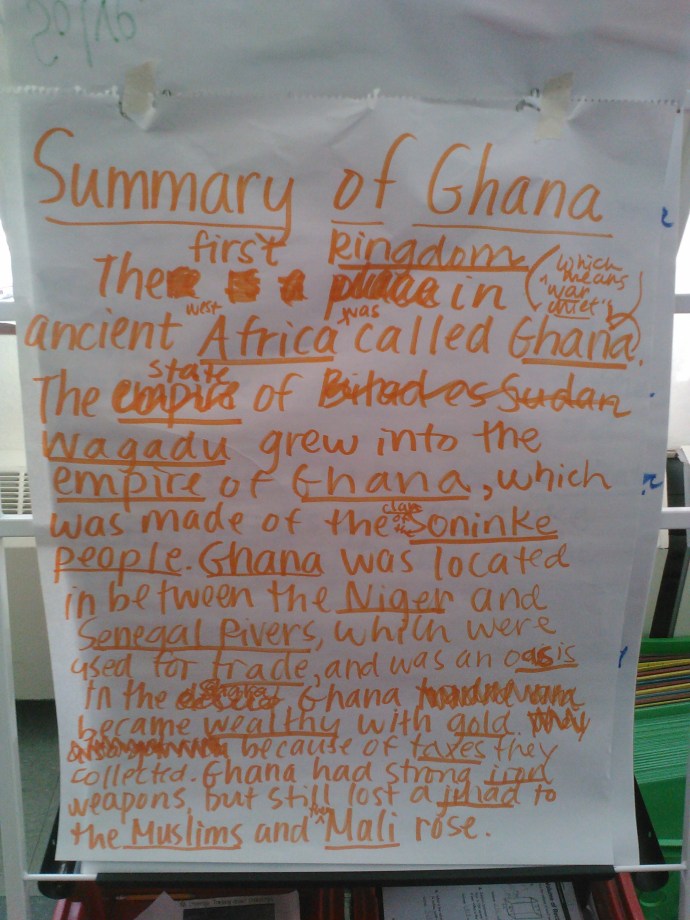 Summary of Ghana
first kingdom
The in
(which means war chief)
ancient west Africa was called Ghana.
The state of
Wagadu grew into the
empire of Ghana, which
was made of the clan of the Soninke
people. Ghana was located
in between the Niger and
Senegal Rivers, which were
used for trade, and was an oasis
in the Sahara Ghana
became wealthy with gold
because of taxes they
collected. Ghana had strong iron
weapons, but still lost a jihad to
the Muslims and then Mali rose.